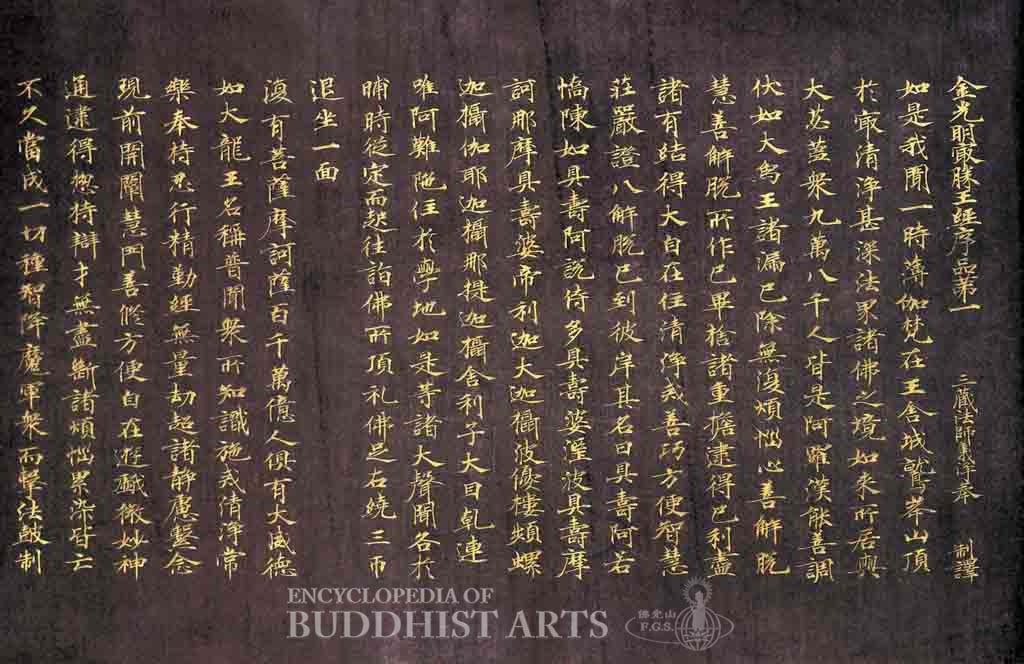 金光明㝡勝王經序品第一 三藏法師義淨奉 制譯
如是我聞一時薄伽梵在王舍城鷲峯山頂
於㝡清淨甚深法界諸佛之境如來所居與
大苾蒭衆九萬八千人皆是阿羅漢能善調
伏如大鳥王諸漏已除無復煩惱心善解脫
慧善解脫所作已畢捨諸重擔逮得己利盡
諸有結得大自在住清淨戒善巧方便智慧
莊嚴證八解脫已到彼岸其名曰具壽阿若
憍陳如具壽阿說侍多具壽婆溼波具壽摩
訶那摩具壽婆帝利迦大迦攝彼優樓頻螺
迦攝伽耶迦攝那提迦攝舍利子大目乹連
唯阿難陁住於學地如是等諸大聲聞各於
晡時從定而起往詣佛所頂礼佛足右繞三帀
退坐一面
復有菩薩摩訶薩百千萬億人俱有大威德
如大龍王名稱普聞衆所知識施戒清淨常
樂奉持忍行精勤經無量劫超諸靜慮繫念
現前開闡慧門善修方便自在遊戲微妙神
通逮得揔持辯才無盡斷諸煩惱累染皆亡
不久當成一切種智降魔軍衆而擊法鼓制
ENCYCLOPEDIA OF
BUDDHIST ARTS
佛光山
F.G.S.